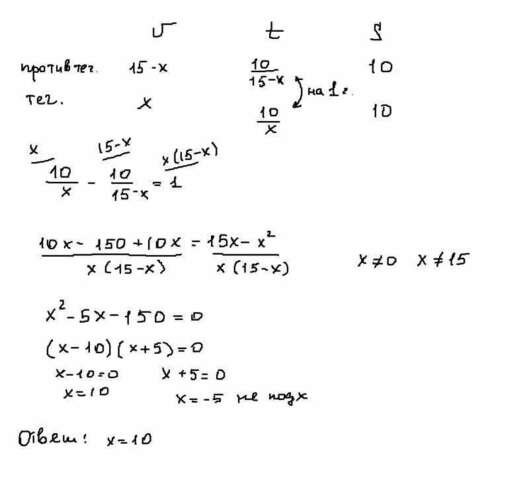 v t S
против теч. 15-x 10/(15-x) на 1 г. 10
теч. x 10/x 10
x 15-x x(15-x)
10/x - 10/(15-x) = 1
(10x - 150 + 10x)/(x(15-x)) = (15x - x²)/(x(15-x)) x≠0 x≠15
x² - 5x - 150 = 0
(x-10)(x+5)=0
x-10=0 x+5=0
x=10 x=-5 не подх
Ответ: x=10